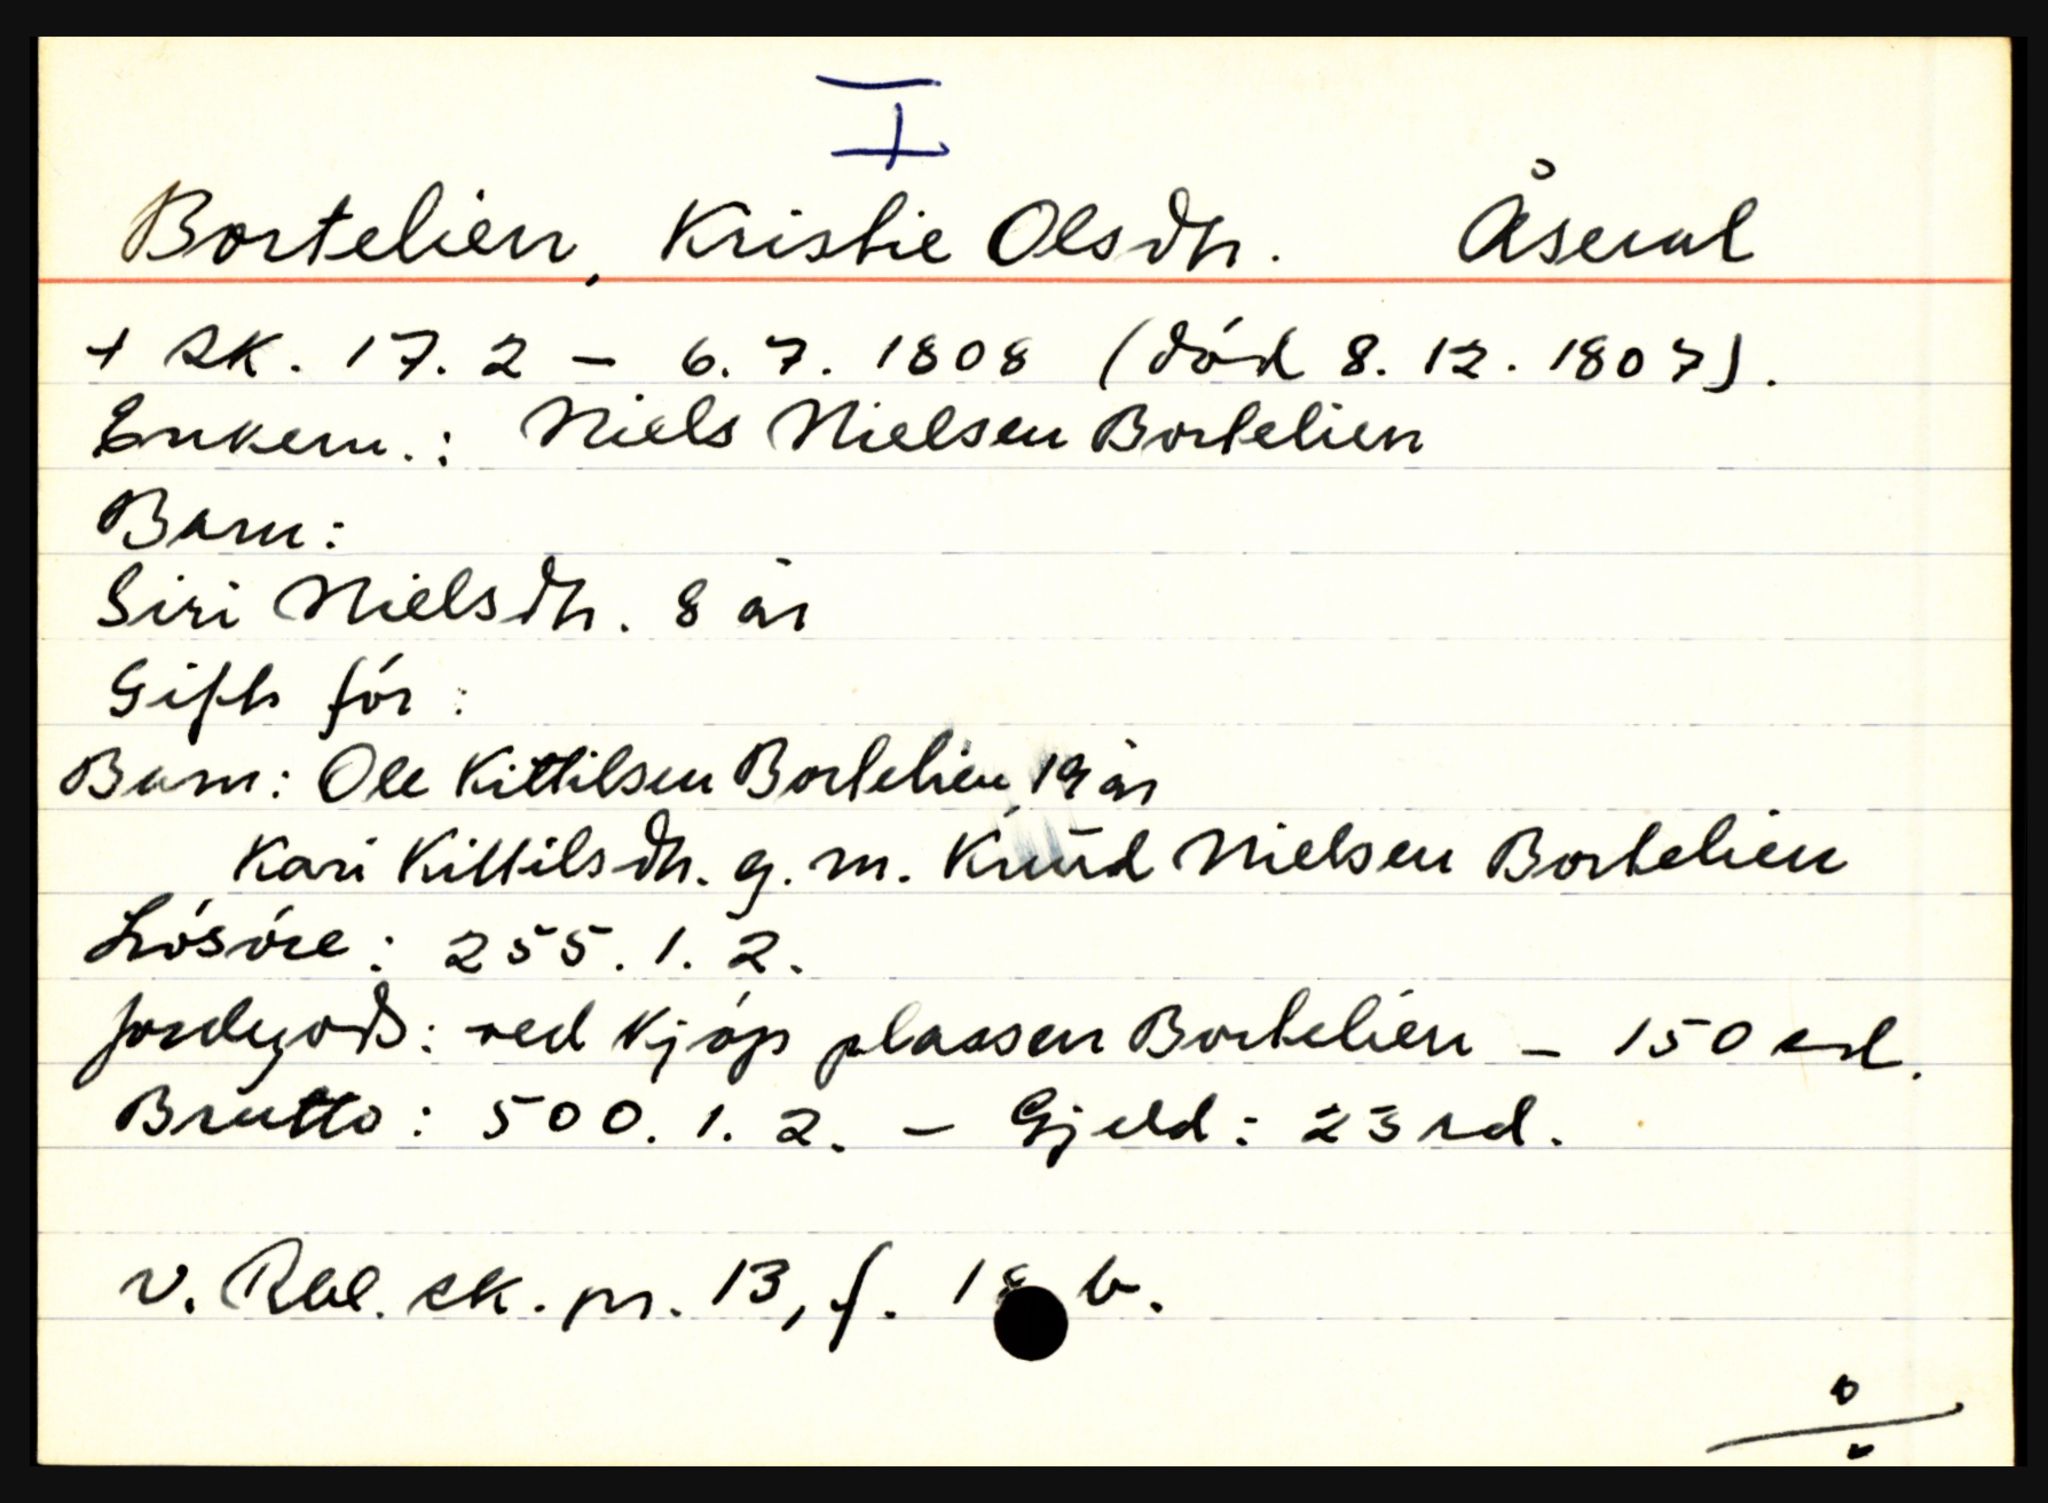 I
Bortelien, Kristie Olsdtr. Åseral
+ sk. 17.2 - 6.7.1808 (død 8.12.1807).
Enkem.: Niels Nielsen Bortelien
Barn:
Siri Nielsdtr. 8 år
Gift før:
Barn: Ole Kittilsen Bortelien 19 år
Kari Kittilsdtr. g. m. Knud Nielsen Bortelien
Løsøre: 255.1.2.
Jordegods: ved kjøp plassen Bortelien - 150 rd.
Brutto: 500.1.2. - Gjeld: 23 rd.
v. Rbl. sk. pr. 13, f. 18 b.